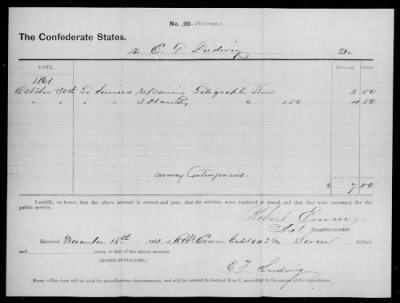 No. 22.—(Voucher.)
The Confederate States.
To E. F. Ludwig Dr.
DATE. DOLLARS. CTS.
1861
October 30th To Services repairing Telegraph Line 2 00
" " " 1.00 00
Army Contingencies
$ 7.00
I certify, on honor, that the above account is correct and just; that the services were rendered as stated, and that they were necessary for the public service.
Robert
Quartermaster.
Received November 18th 1861, of Seven dollars
and cents, in full of the above account.
(SIGNED DUPLICATES.)
E. F. Ludwig
(NOTE.—This form will be used for miscellaneous disbursements, and will be entered in abstract B or C, according to the nature of the expenditure.)